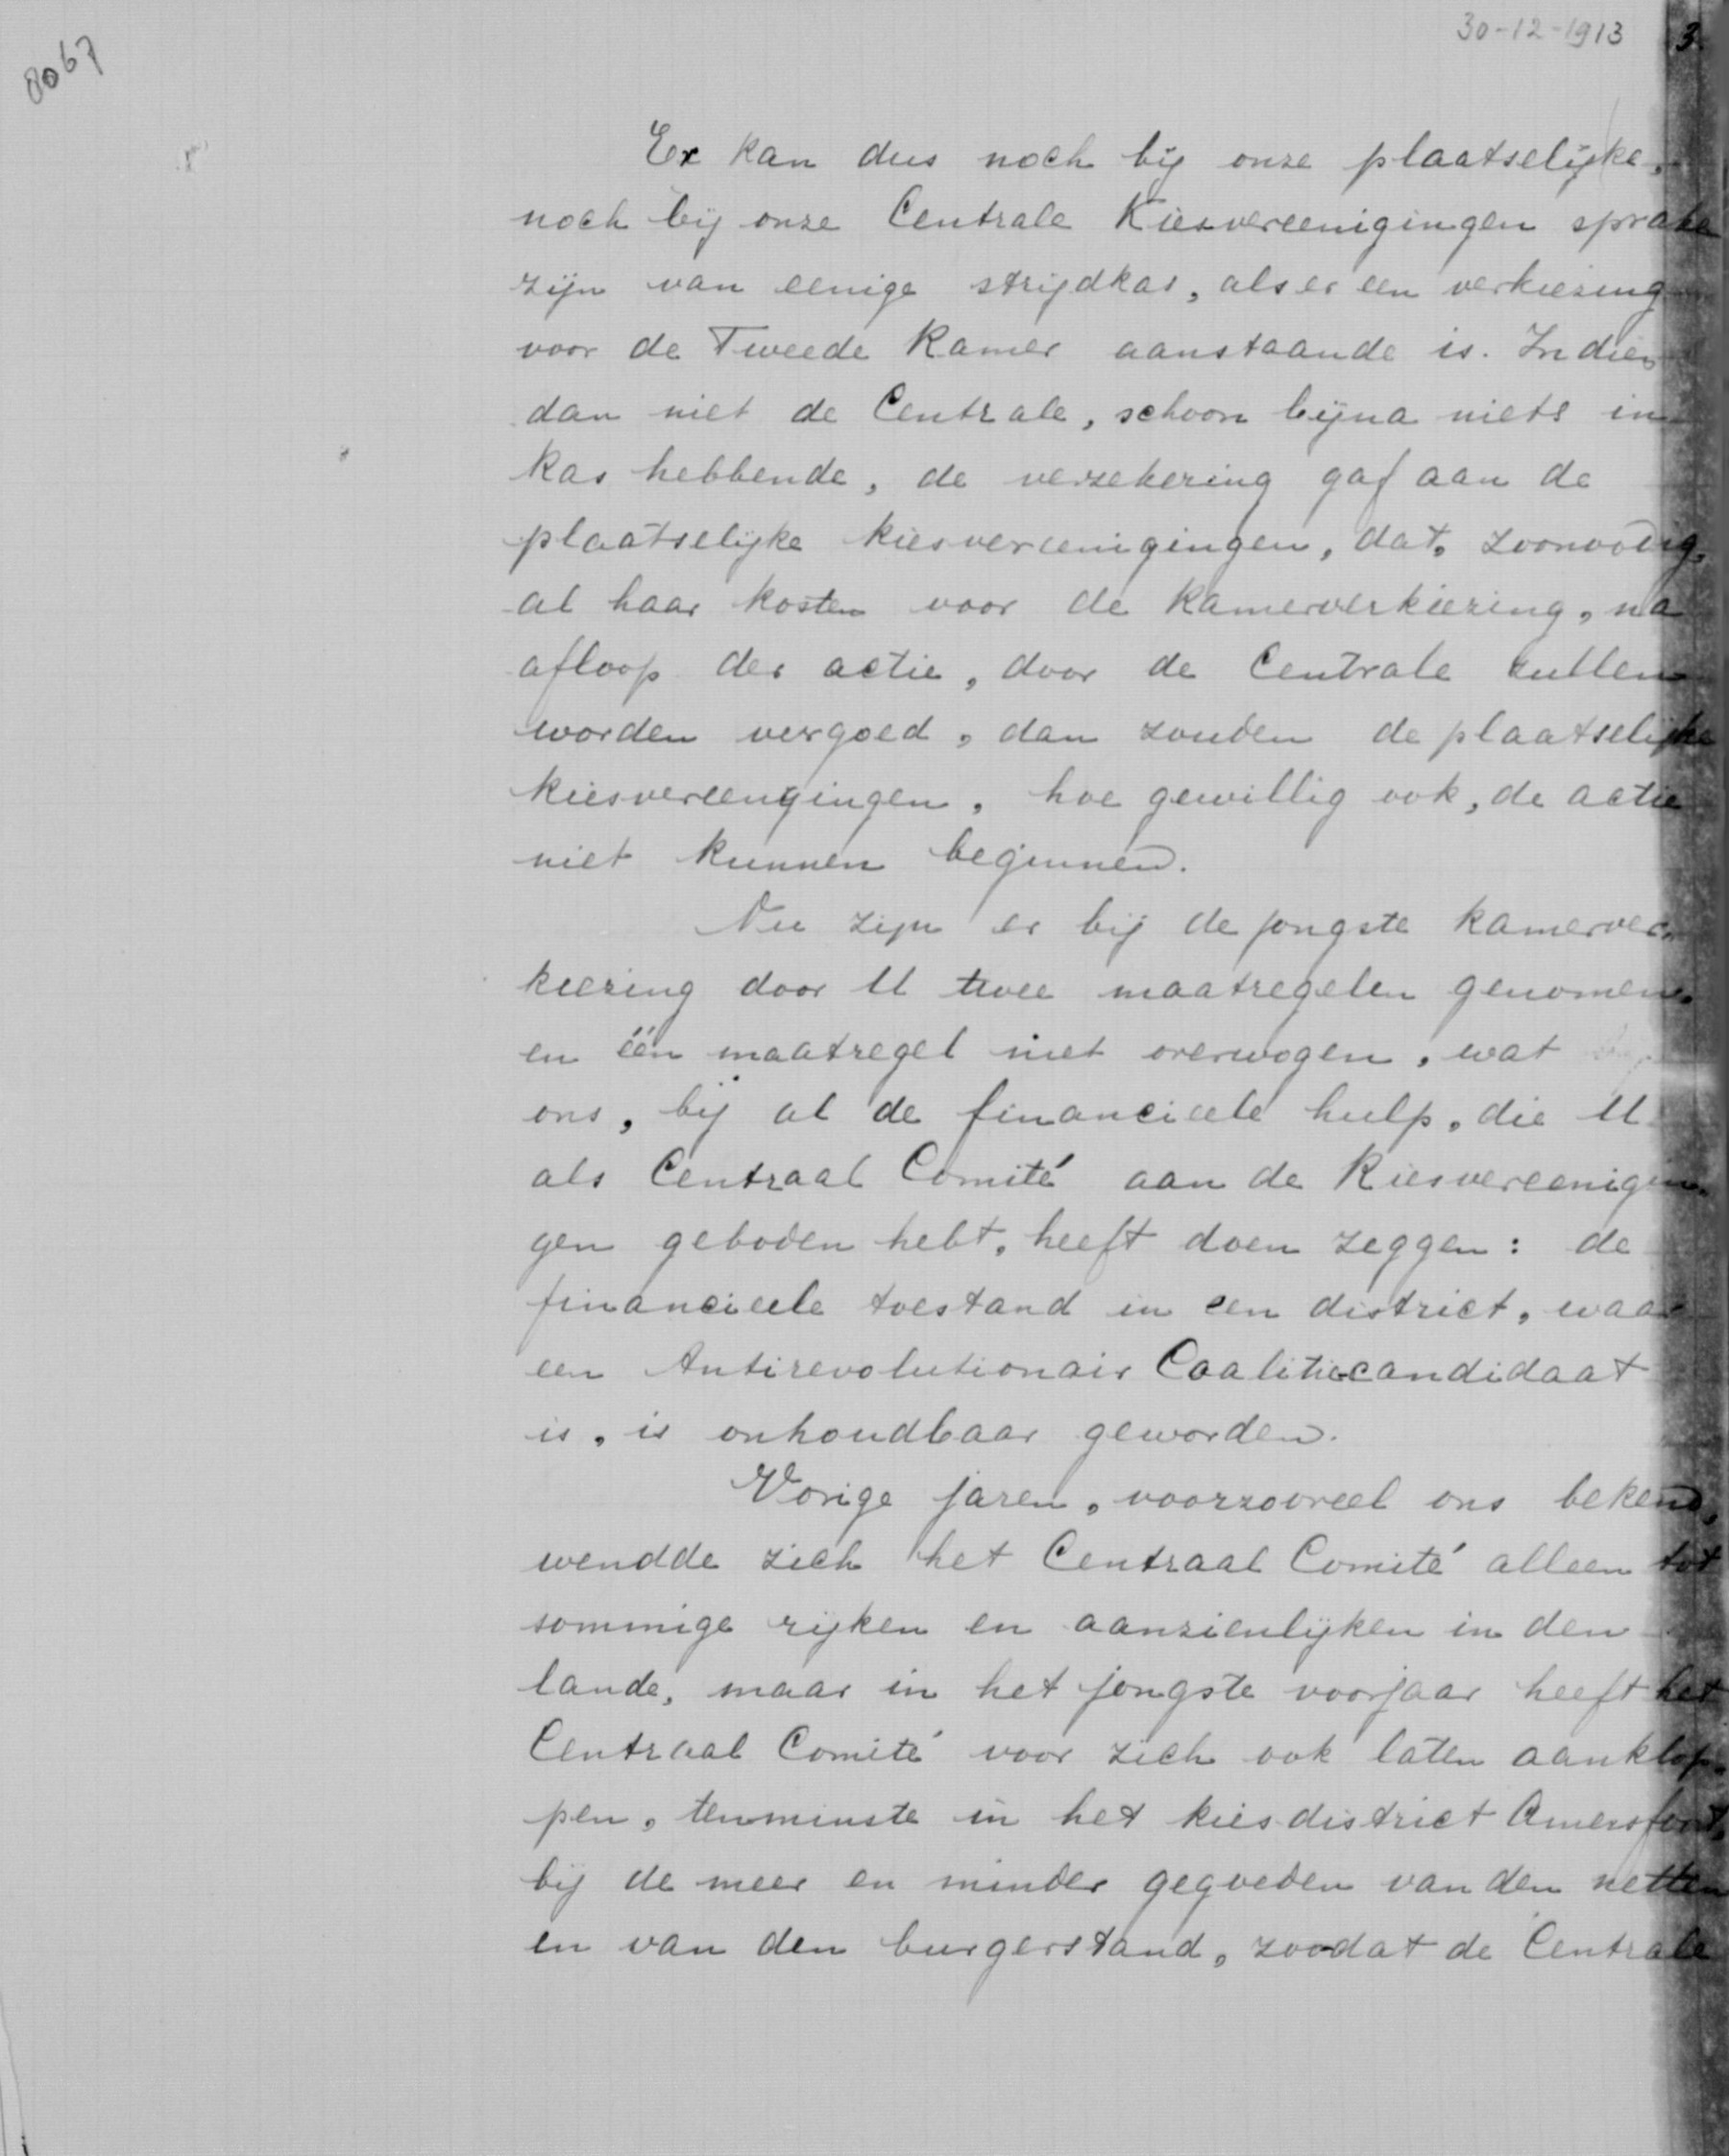 30-12-1913 3
8067
Er kan dus noch bij onze plaatselijke,
noch bij onze Centrale Kiesvereenigingen sprake
zijn van eenige strijdkas, als er een verkiezing
voor de Tweede Kamer aanstaande is. Indien
dan niet de Centrale, schoon bijna niets in
kas hebbende, de verzekering gaf aan de
plaatselijke kiesvereenigingen, dat, zoonoodig,
al haar kosten voor de Kamerverkiezing, na
afloop der actie, door de Centrale zullen
worden vergoed, dan zouden de plaatselijke
kiesvereenigingen, hoe gewillig ook, de actie
niet kunnen beginnen.
Nu zijn er bij de jongste Kamerver-
kiezing door U twee maatregelen genomen
en één maatregel niet overwogen, wat
ons, bij al de financieele hulp, die U
als Centraal Comité aan de Kiesvereenigin-
gen geboden hebt, heeft doen zeggen: de
financieele toestand in een district, waar
een Antirevolutionair Coalitiecandidaat
is, is onhoudbaar geworden.
Vorige jaren, voorzooveel ons bekend,
wendde zich het Centraal Comité alleen tot
sommige rijken en aanzienlijken in den
lande, maar in het jongste voorjaar heeft het
Centraal Comité voor zich ook laten aanklop-
pen, tenminste in het kiesdistrict Amersfoort,
bij de meer en minder gegoeden van den netten
en van den burgerstand, zoodat de Centrale